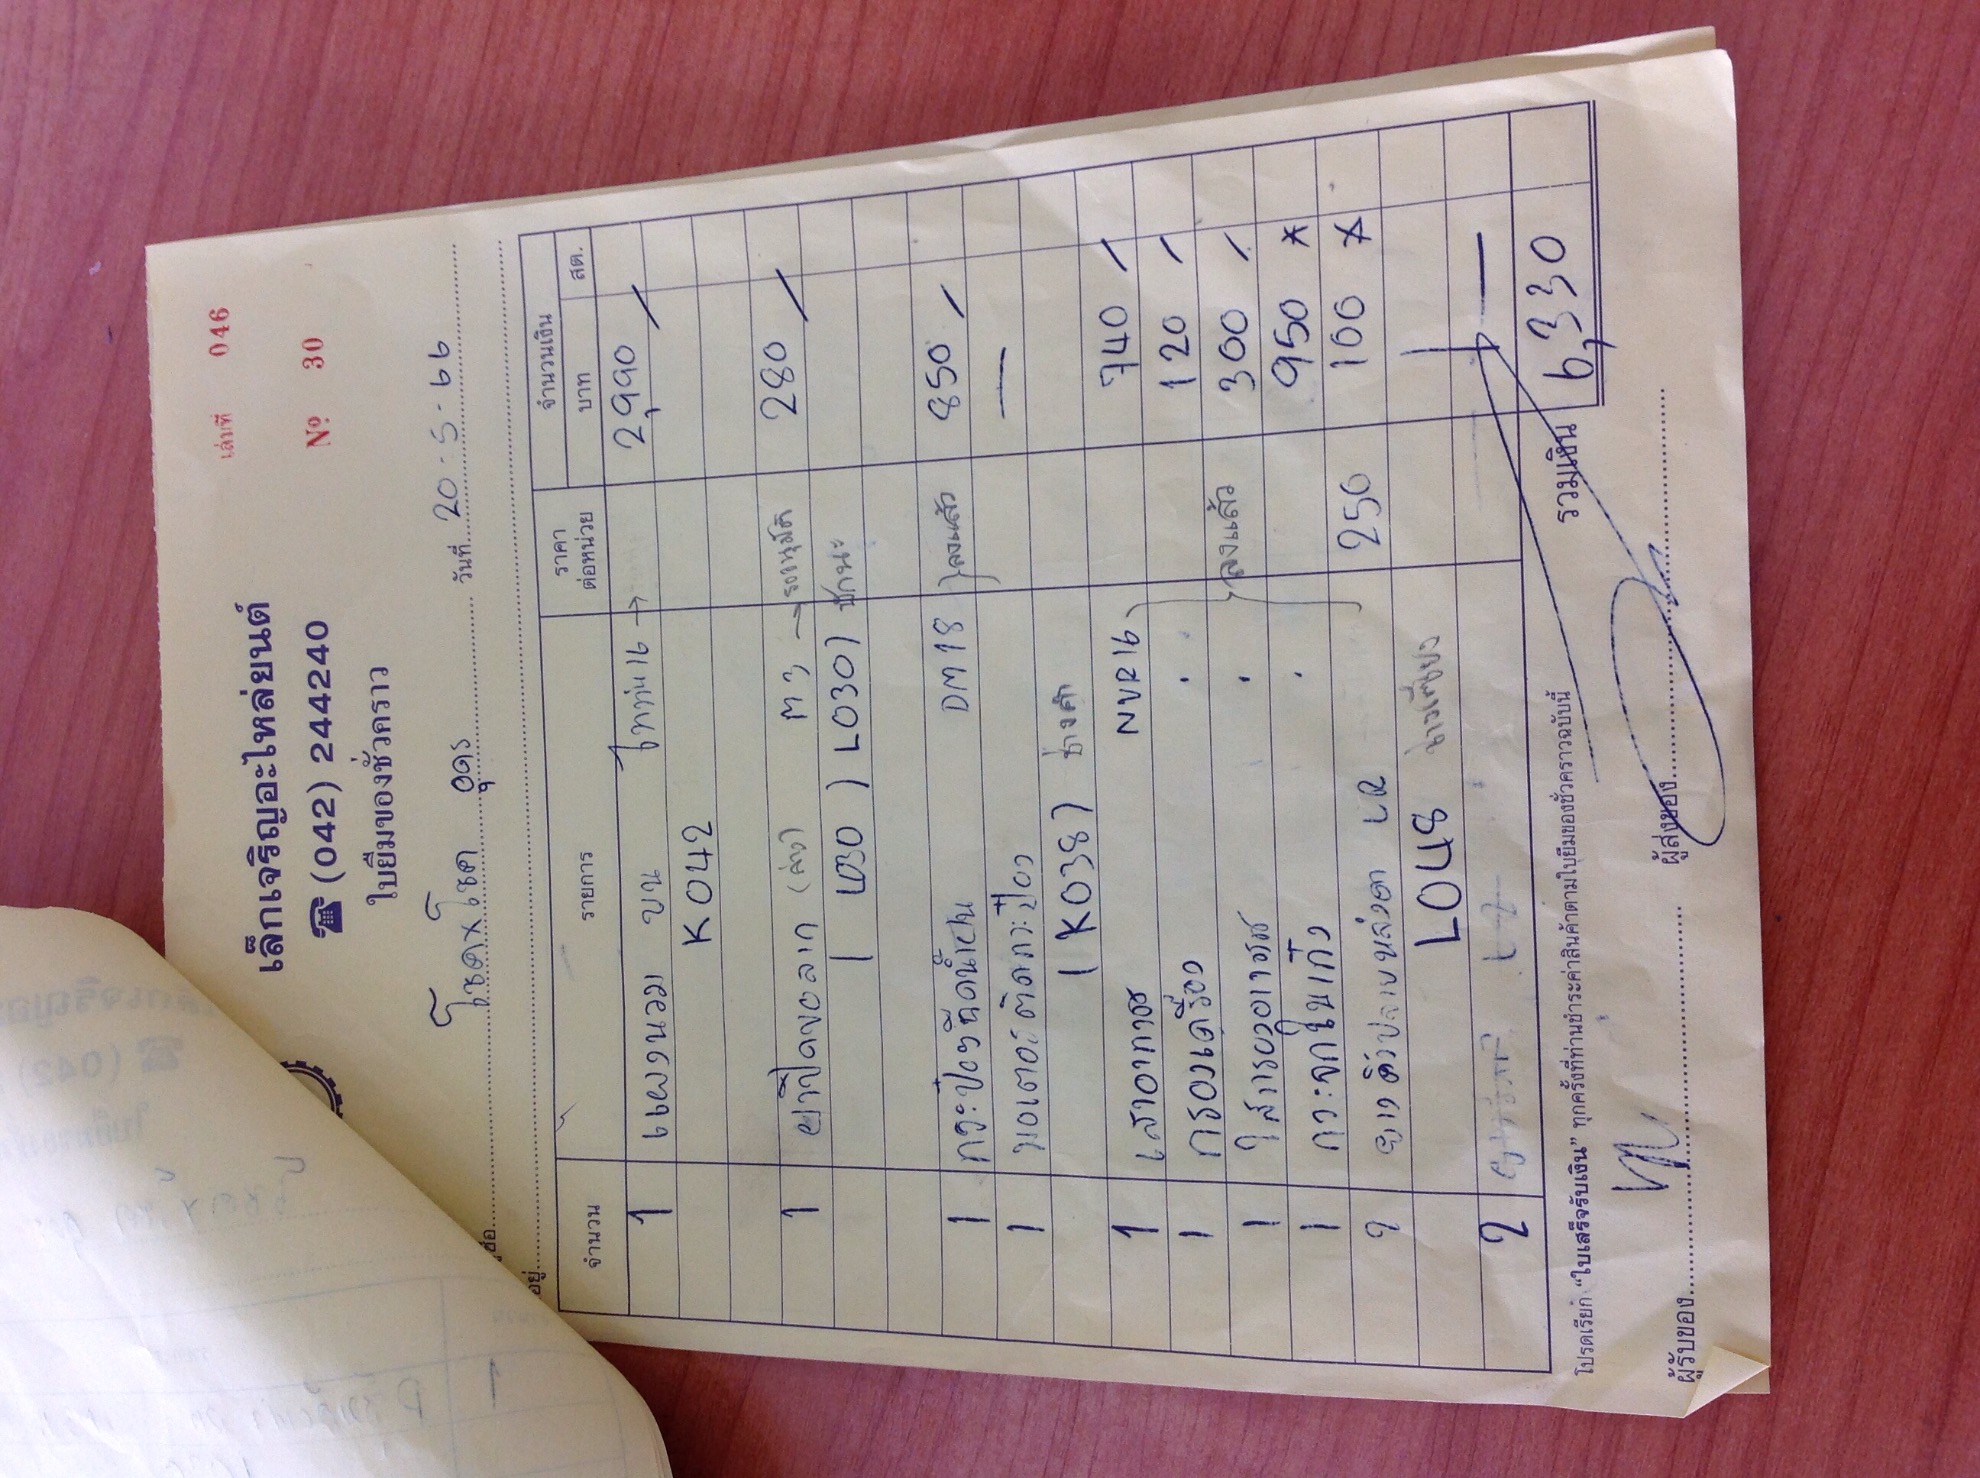 เล็กเจริญอะไหล่ยนต์
☎ (042) 244240
ใบยืมของชั่วคราว
เล่มที่ 046
Nº 30
โชคXโชค อุดร วันที่ 20-5-66
จำนวน รายการ ราคาต่อหน่วย จำนวนเงิน บาท สต.
1 แผงนวม บน ไททัน16 → 2,990
K042
1 (ล่าง) M3 → 280
1030 ) L030)
1 กระป๋องฉีดน้ำฝน DM18 ลงแล้ว 850
1 มอเตอร์ติดกระป๋อง —
(K038) ช่างดำ
1 เสาอากาศ NVR16 740
1 กรองเครื่อง . 120
1 ไส้กรองอากาศ . ลงแล้ว 300
1 กระจกในเก๋ง . 950 *
2 LR 250 100 *
L048
2 —
รวมเงิน 6,330
โปรดเรียก "ใบเสร็จรับเงิน" ทุกครั้งที่ท่านชำระค่าสินค้าตามใบยืมของชั่วคราวฉบับนี้
ผู้รับของ ผู้ส่งของ